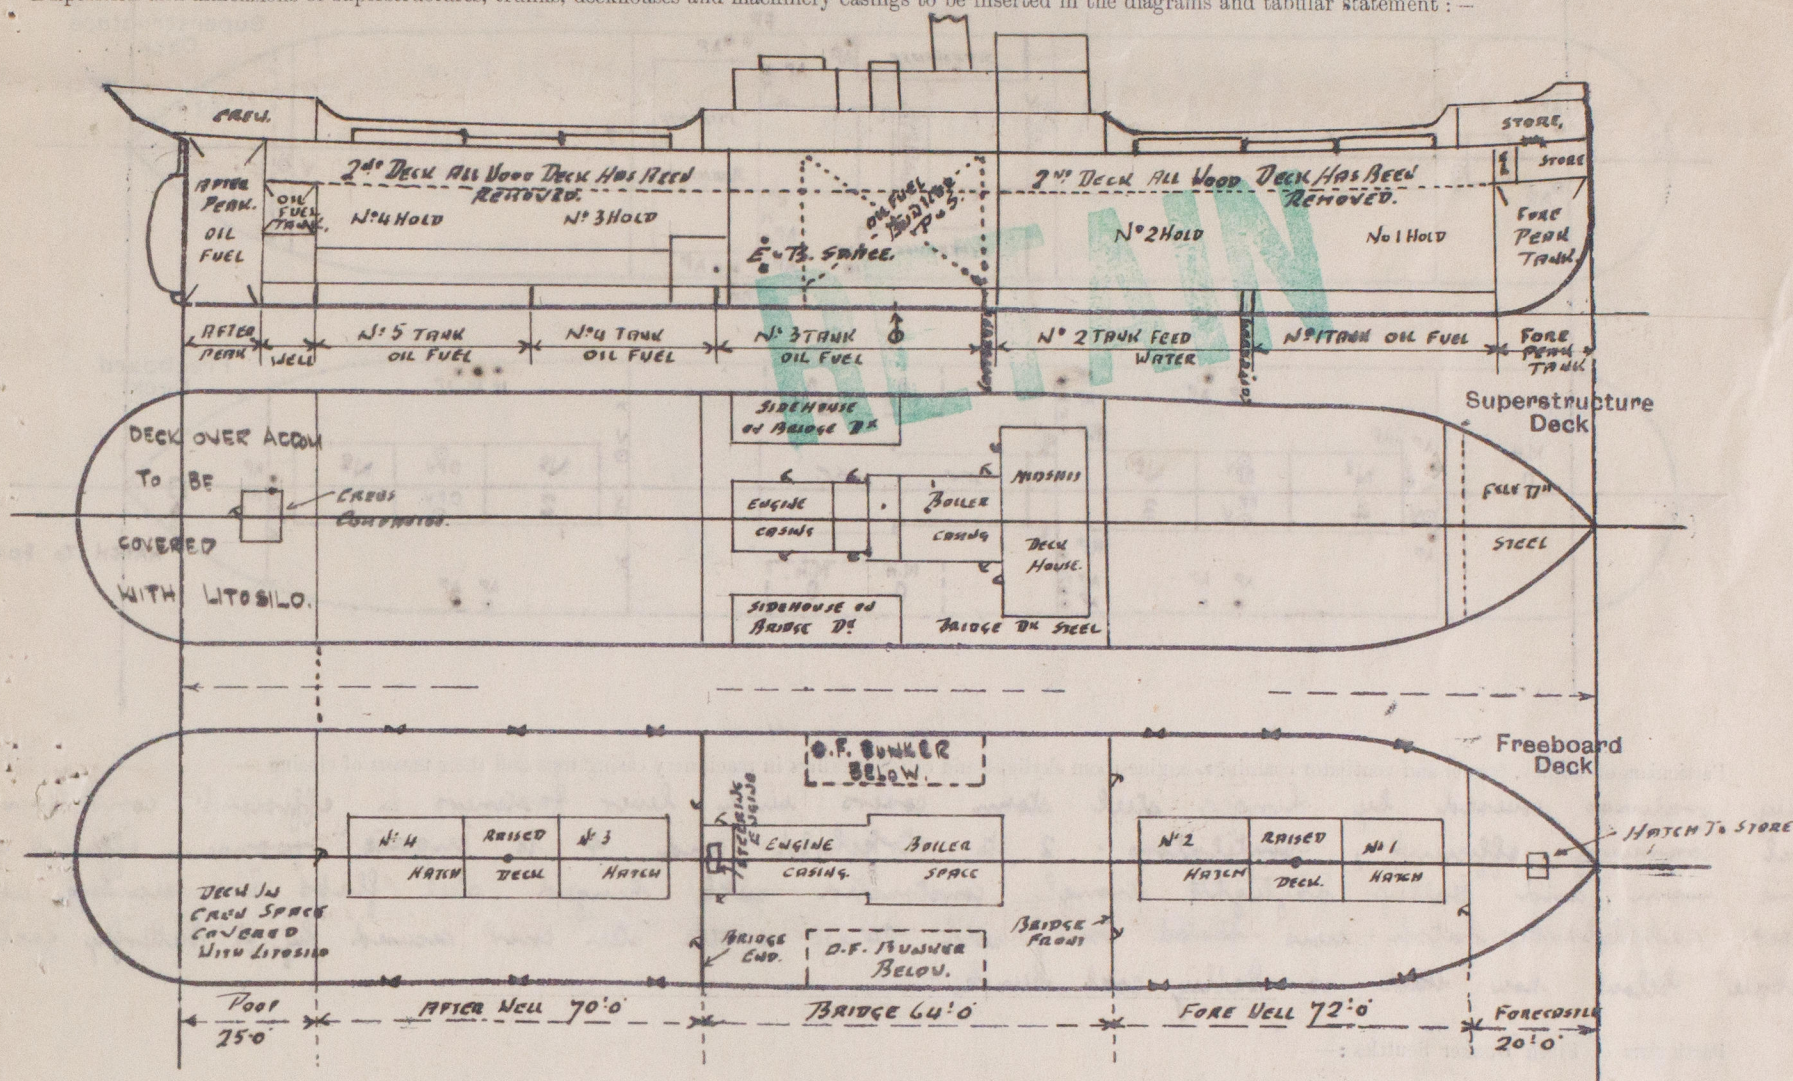 and dimensions of superstructures, trunks, deckhouses and machinery casings to be inserted in the diagrams and tabular statement : —
CREW.
STORE,
STORE
2ND DECK ALL WOOD DECK HAS BEEN
REMOVED.
2ND DECK ALL WOOD DECK HAS BEEN
REMOVED.
AFTER
PEAK.
OIL
FUEL
OIL
FUEL
TANK.
No 4 HOLD
No 3 HOLD
OIL FUEL
BUNKER
P & S.
E & B. SPACE.
No 2 HOLD
No 1 HOLD
FORE
PEAK
TANK.
RETAIN
AFTER
PEAK
WELL
No 5 TANK
OIL FUEL
No 4 TANK
OIL FUEL
No 3 TANK
OIL FUEL
No 2 TANK FEED
WATER
No 1 TANK OIL FUEL
FORE
PEAK
TANK
Superstructure
Deck
DECK OVER ACCOM
TO BE
COVERED
WITH LITOSILO.
CREWS
COMPANION.
SIDEHOUSE
ON BRIDGE DK
ENGINE
CASING
BOILER
CASING
MIDSHIP
DECK
HOUSE.
SIDEHOUSE ON
BRIDGE DK
BRIDGE DK STEEL
STEEL
Freeboard
Deck
O.F. BUNKER
BELOW.
STEERING
ENGINE
No 4
HATCH
RAISED
DECK
No 3
HATCH
ENGINE
CASING.
BOILER
SPACE
No 2
HATCH
RAISED
DECK.
No 1
HATCH
HATCH TO STORE
DECK IN
CREW SPACE
COVERED
WITH LITOSILO
BRIDGE
END.
O.F. BUNKER
BELOW.
BRIDGE
FRONT
POOP
25'0"
AFTER WELL 70'0"
BRIDGE 64'0"
FORE WELL 72'0"
FORECASTLE
20'0"